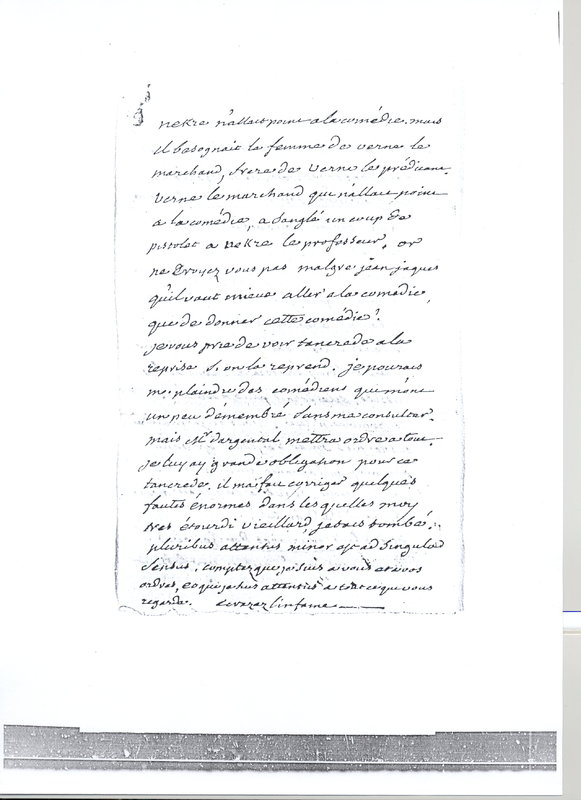 nekre n'allait point a la comédie. mais
il besognait la femme de verne le
marchand, frere de verne le prédicant.
verne le marchand qui n'allait point
a la comédie, a sanglé un coup de
pistolet a nekre le professeur. or
ne croyez vous pas malgré jean jaques
qu'il vaut mieux aller a la comédie,
que de donner cette comédie?
je vous prie de voir tancrede a la
reprise si on la reprend. je pourais
me plaindre des comédiens qui m'ont
un peu démembré sans me consulter.
mais Mr. d'argental mettra ordre a tout.
je luy ay grande obligation pour ce
tancrede. il m'a fait corriger quelques
fautes énormes dans les quelles moy
tres étourdi vieillard, jetais tombé.
pluribus attentus minor est ad singula
sensus. comptez que je suis a vous et a vos
ordres, et que je suis attentif a tout ce qui vous
regarde. ecrazez l'infame